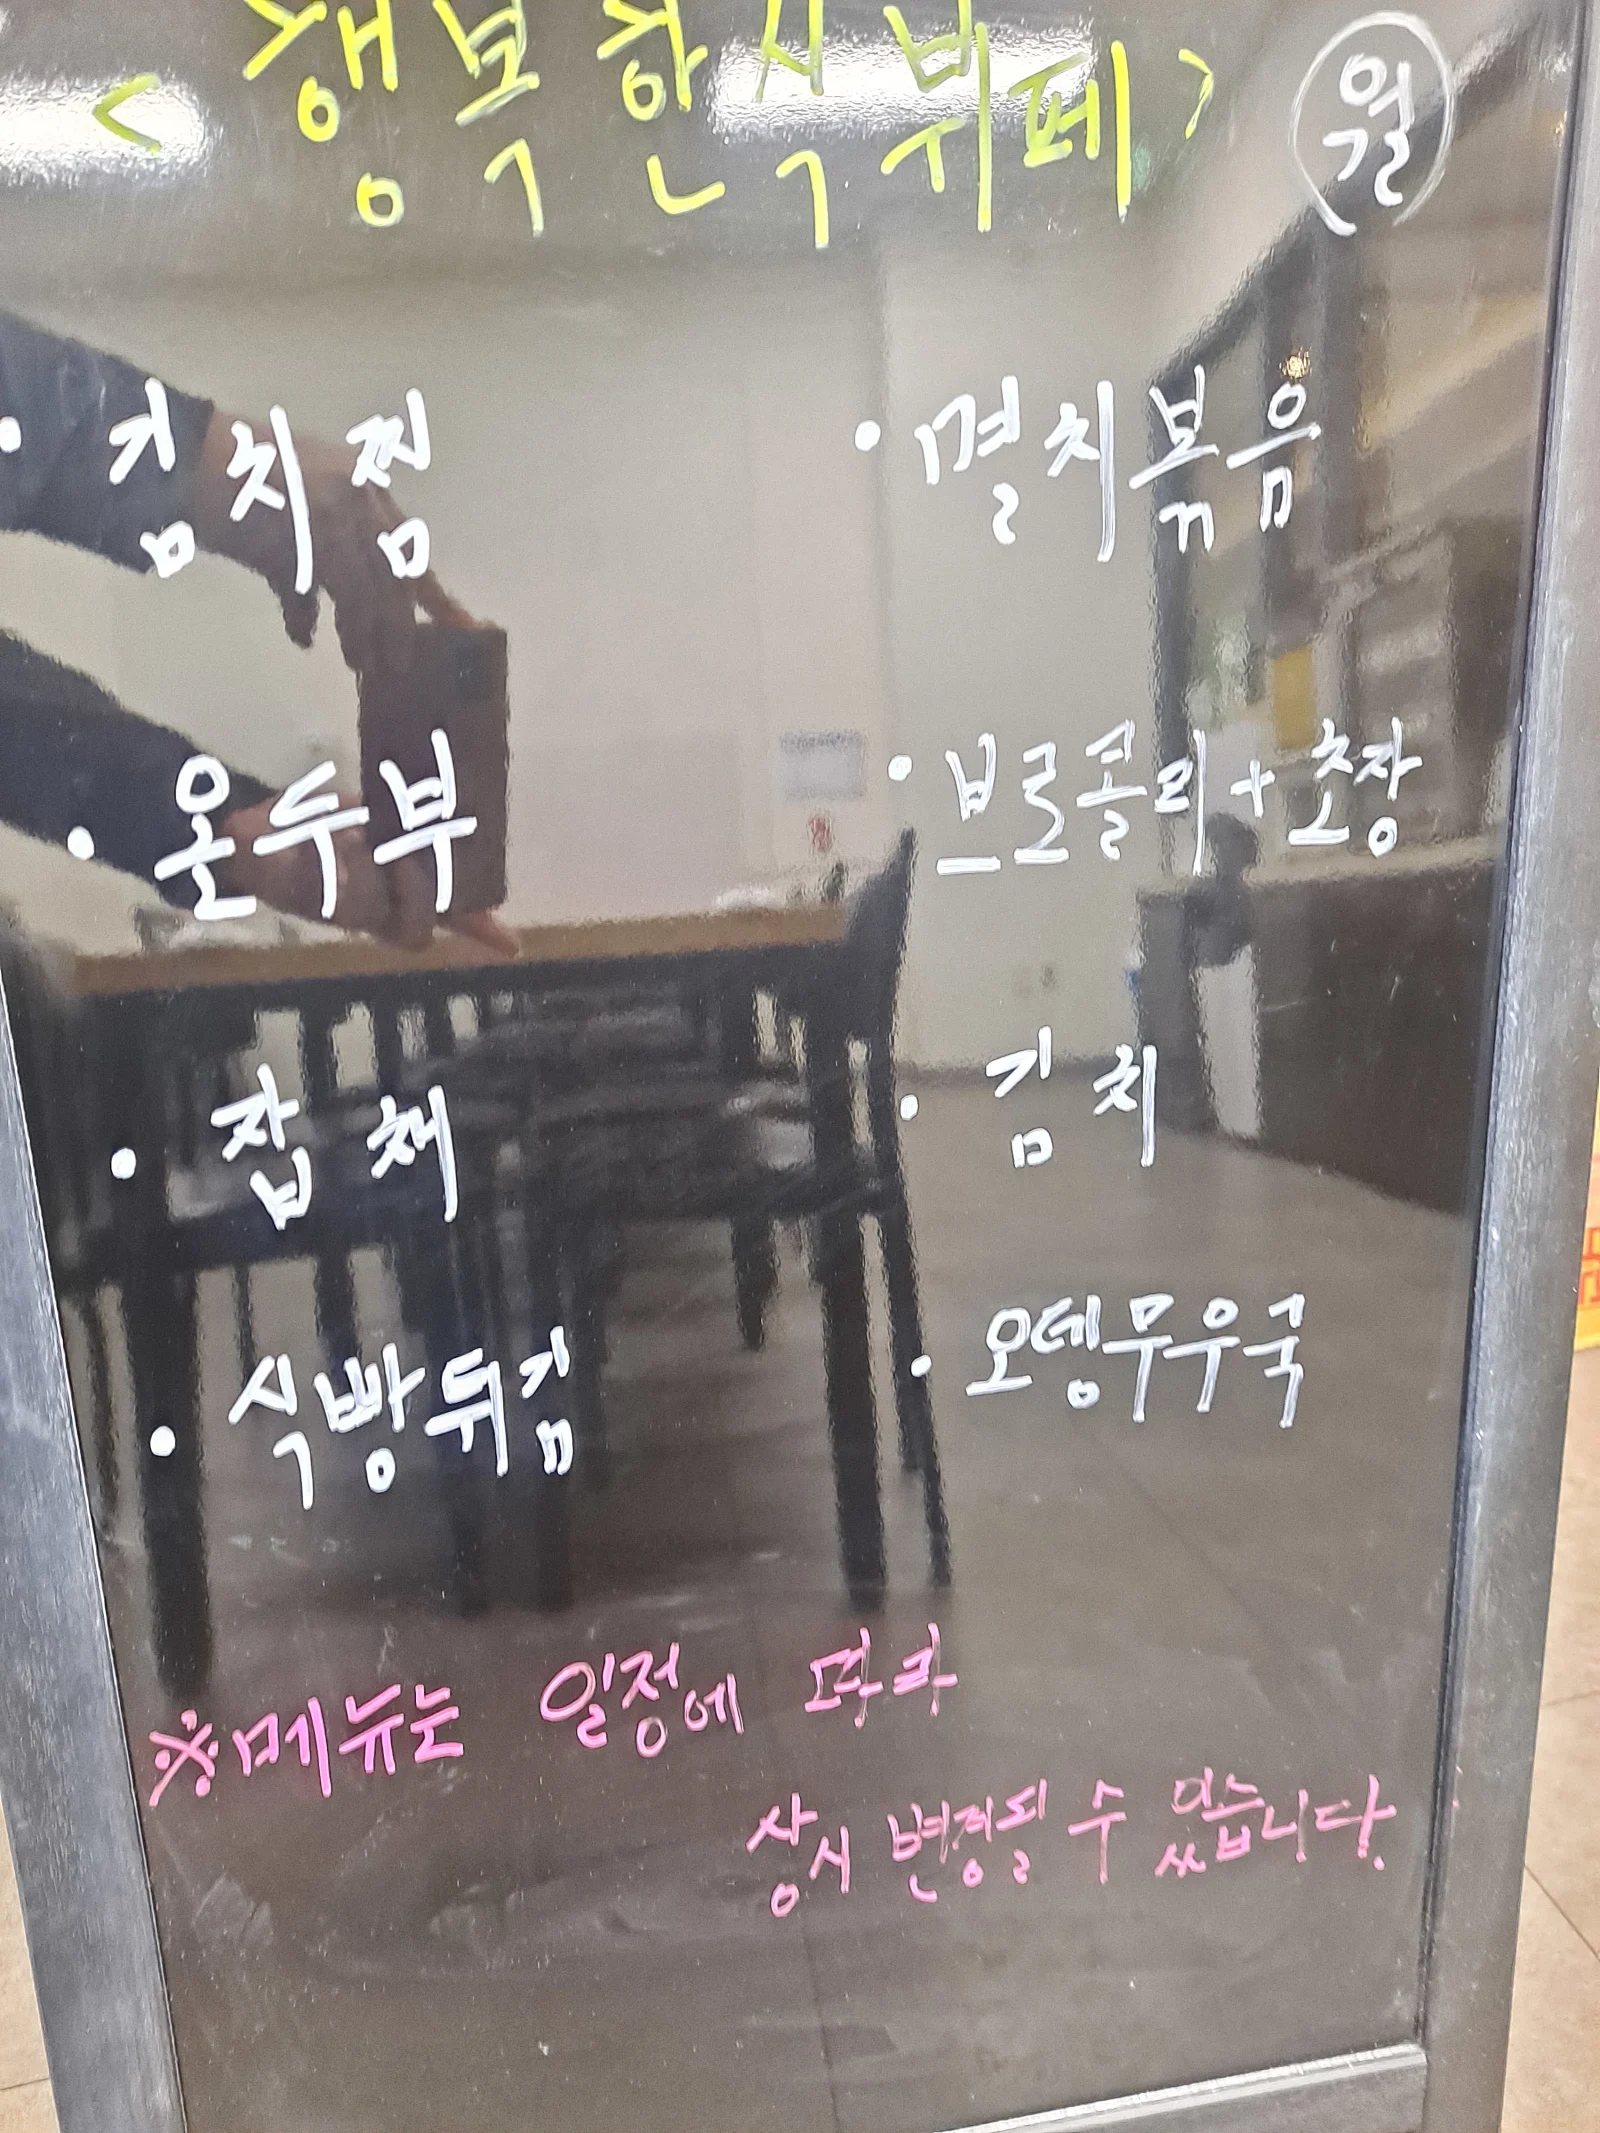 <행복한식뷔페> 월
• 김치찜
• 온두부
• 잡채
• 식빵튀김
• 멸치볶음
• 브로콜리+초장
• 김치
• 오뎅무우국
※메뉴는 일정에 따라
상시 변경될 수 있습니다.